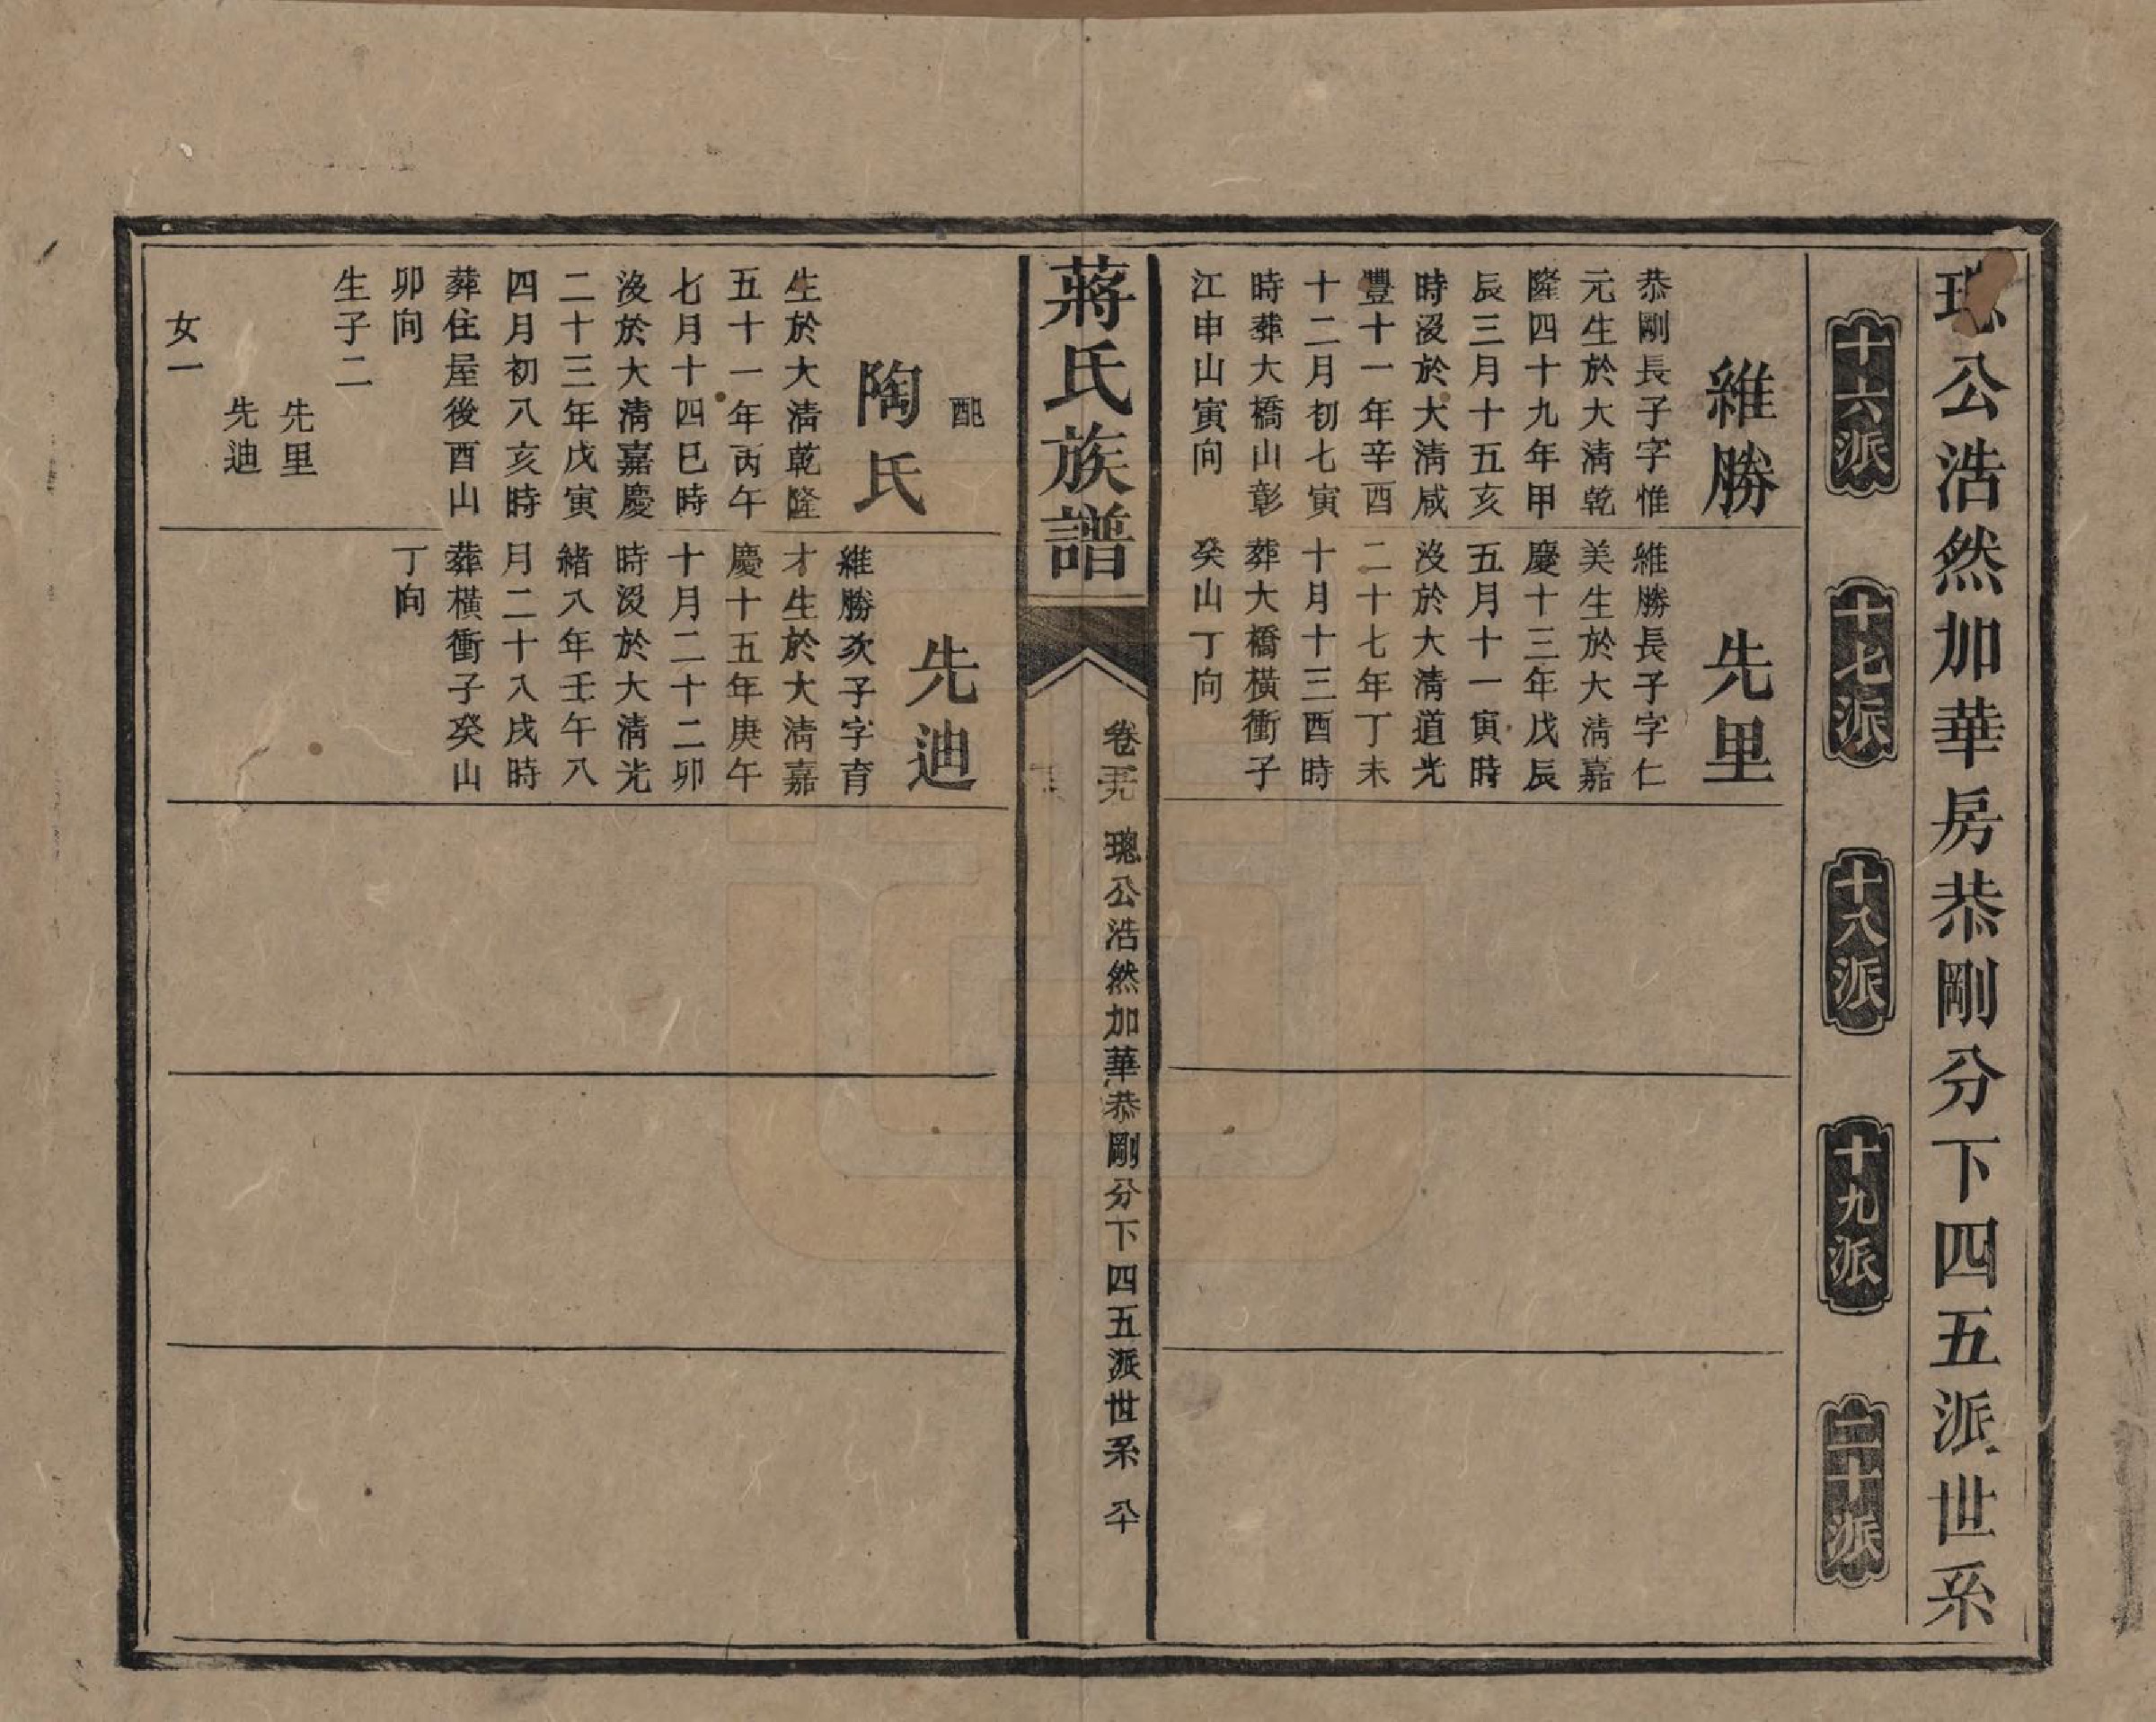 瑰公浩然加華房恭剛分下四五派世系
十六派
十七派
十八派
十九派
二十派
維勝
恭剛長子字惟
元生於大清乾
隆四十九年甲
辰三月十五亥
時沒於大清咸
豐十一年辛酉
十二月初七寅
時葬大橋山彰
江申山寅向
先里
維勝長子字仁
美生於大清嘉
慶十三年戊辰
五月十一寅時
沒於大清道光
二十七年丁未
十月十三酉時
葬大橋橫衝子
癸山丁向
蔣氏族譜
卷
瑰公浩然加華恭剛分下四五派世系
八十
配
陶氏
生於大清乾隆
五十一年丙午
七月十四巳時
沒於大清嘉慶
二十三年戊寅
四月初八亥時
葬住屋後酉山
卯向
生子二
先里
先迪
女一
先迪
維勝次子字育
才生於大清嘉
慶十五年庚午
十月二十二卯
時沒於大清光
緒八年壬午八
月二十八戌時
葬橫衝子癸山
丁向